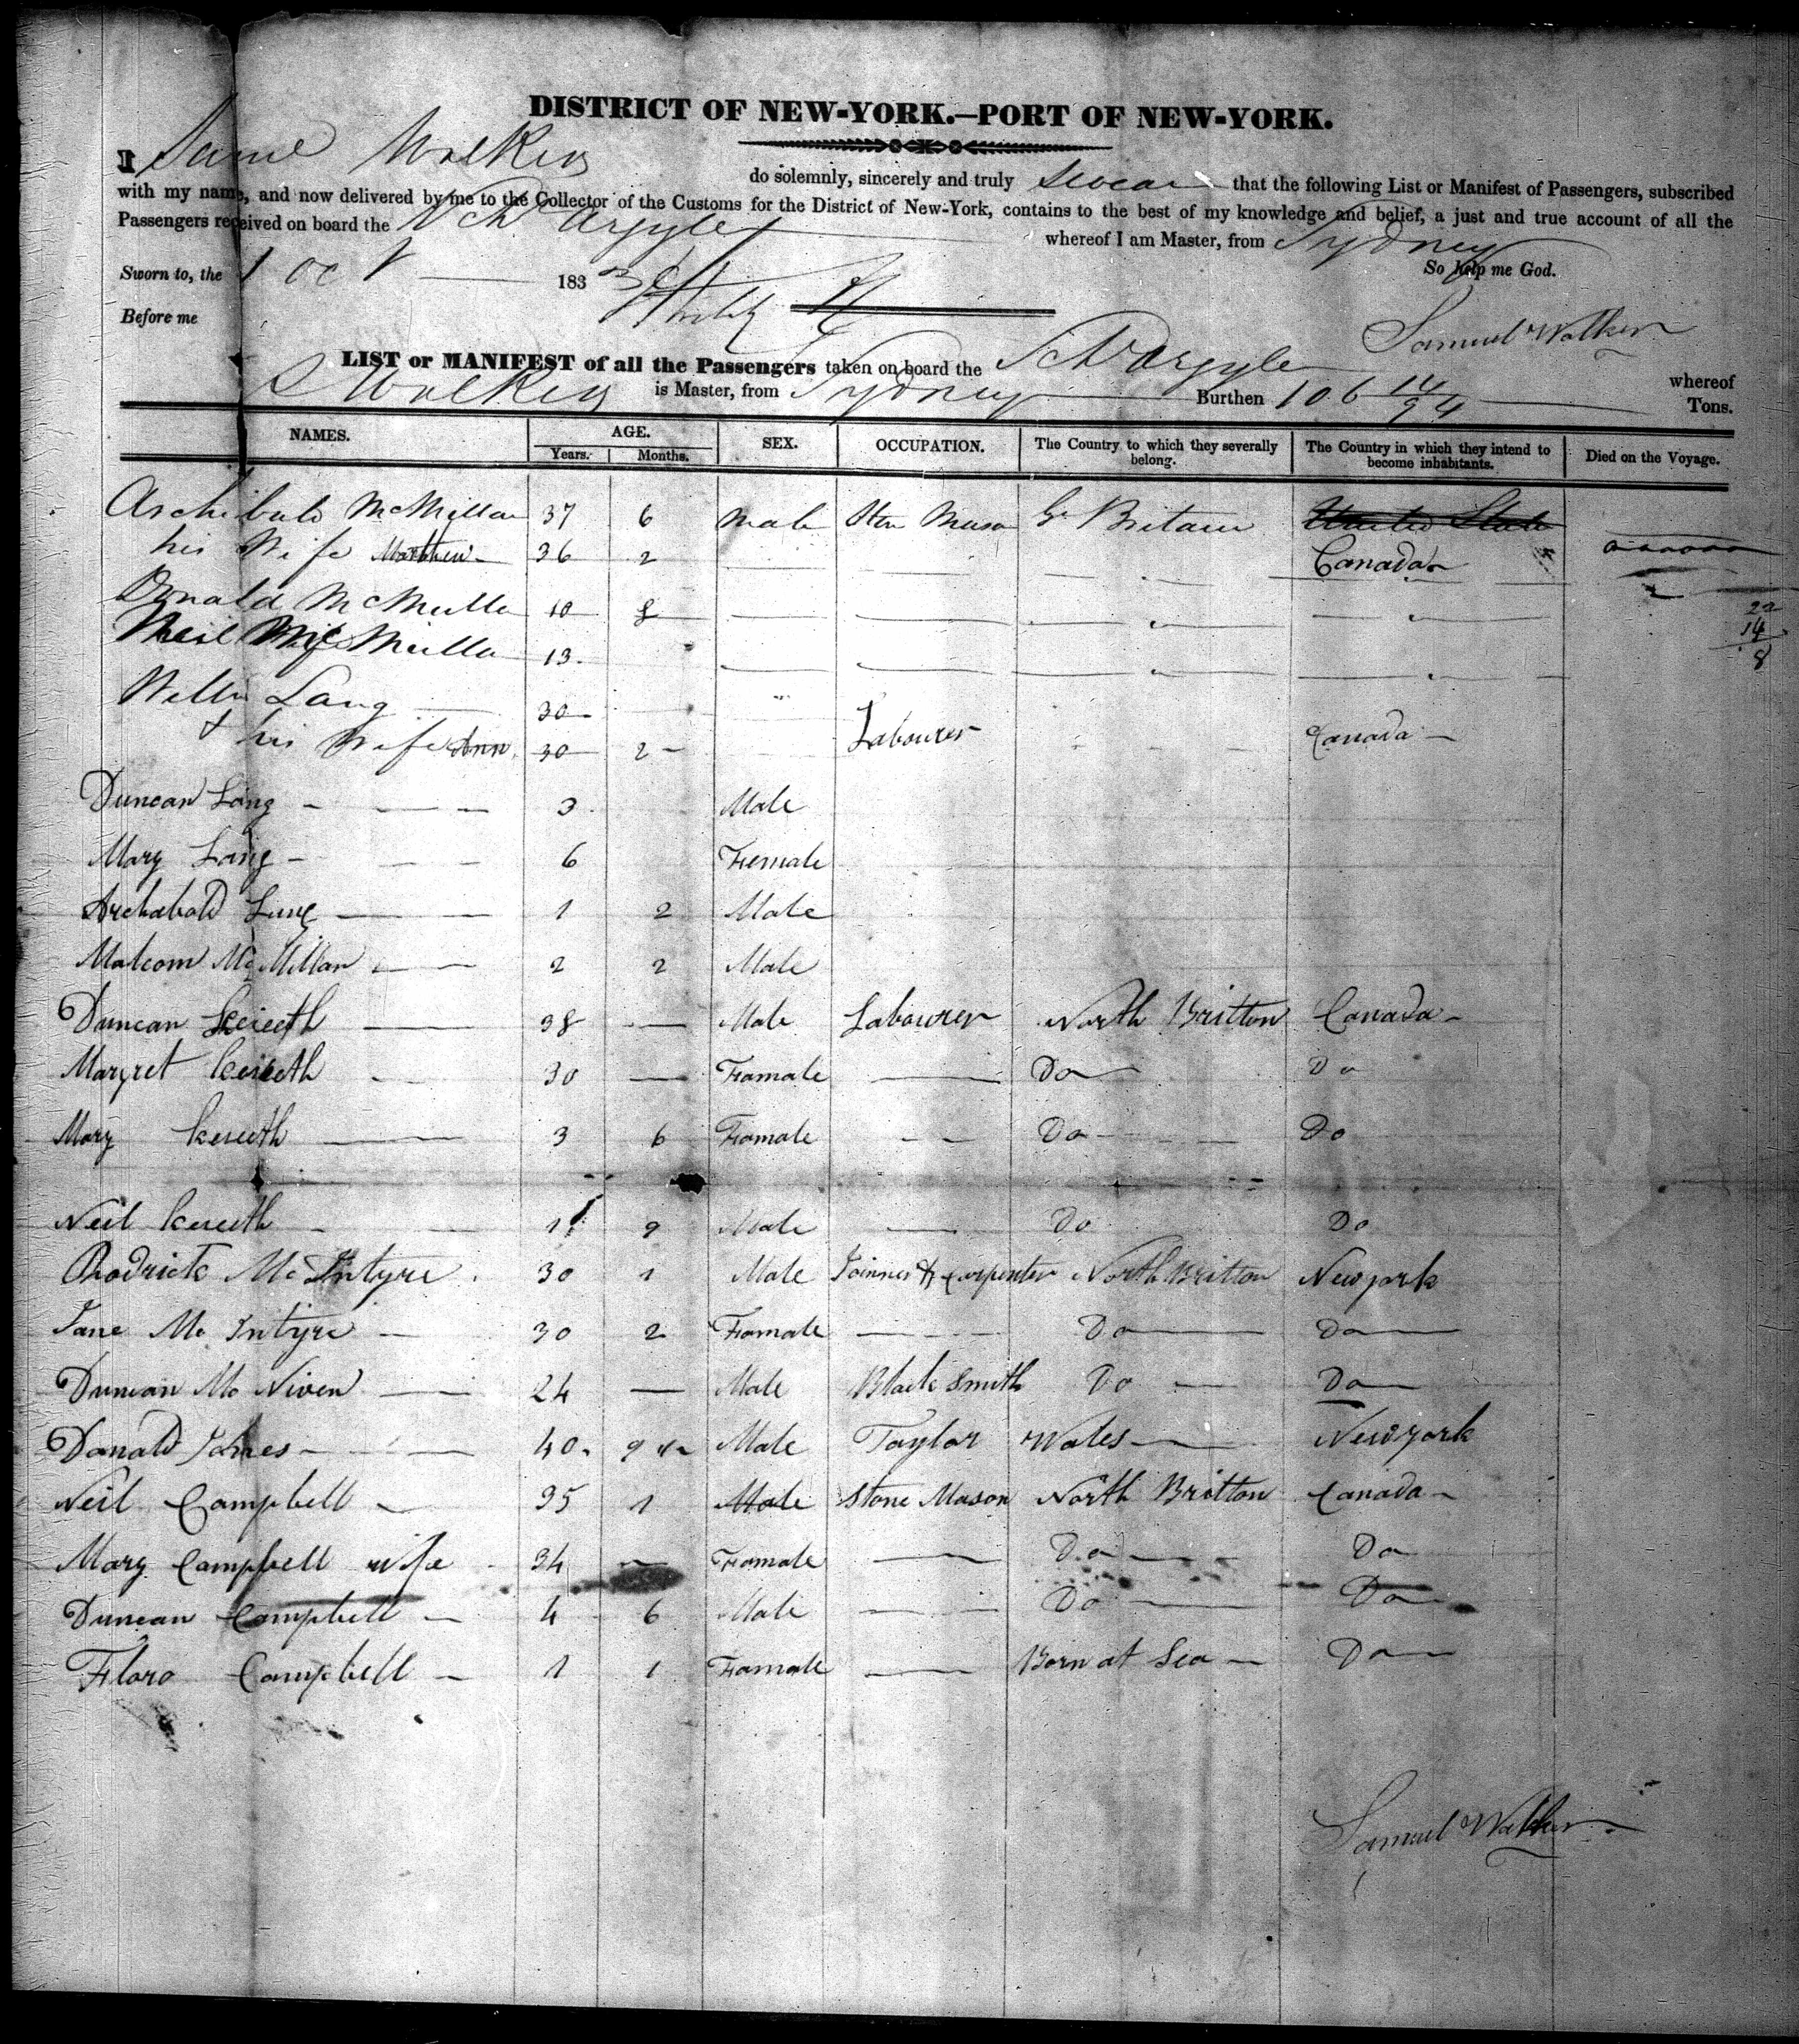 DISTRICT OF NEW-YORK.—PORT OF NEW-YORK.
I Saml Walker do solemnly, sincerely and truly swear that the following List or Manifest of Passengers, subscribed
with my name, and now delivered by me to the Collector of the Customs for the District of New-York, contains to the best of my knowledge and belief, a just and true account of all the
Passengers received on board the Sch Argyle whereof I am Master, from Sydney
Sworn to, the 1 Oct 1833 So help me God.
Before me Samuel Walker
LIST or MANIFEST of all the Passengers taken on board the Sch Argyle whereof
S Walker is Master, from Sydney Burthen 106 14/94 Tons.
NAMES. AGE. Years. Months. SEX. OCCUPATION. The Country to which they severally belong. The Country in which they intend to become inhabitants. Died on the Voyage.
Archibald McMillan 37 6 male Ston Mason Gt Britain United States
his Wife 36 2 Canada
Donald McMulla 10
Neil McMulla 13
22
14
8
Lang 30
& his Wife Ann 30 2 Labourer Canada
Duncan Lang 3 Male
Mary Lang 6 Female
Archabald Lang 1 2 Male
Malcom McMillan 2 2 Male
Duncan 38 Male Labourer North Britton Canada
Margret 30 Famale Do Do
Mary 3 6 Famale Do Do
Neil 1 9 Male Do Do
Rhodrick McIntyre 30 1 Male Joinner & Carpenter North Britton Newyork
Jane McIntyre 30 2 Famale Do Do
Duncan McNiven 24 Male Black Smith Do Do
Donald Jones 40 9 Male Taylor Wales Newyork
Neil Campbell 35 1 Male Stone Mason North Britton Canada
Mary Campbell wife 34 Famale Do Do
Duncan Campbell 4 6 Male Do Do
Flora Campbell 1 1 Famale Born at Sea Do
Samuel Walker